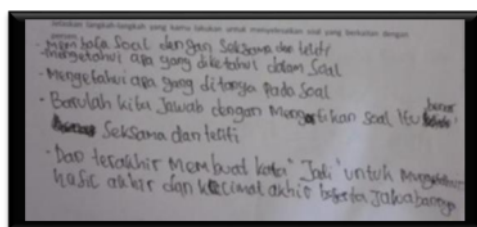 tuliskan langkah-langkah yang kamu lakukan untuk menyelesaikan soal yang berkaitan dengan
persen
- Membaca Soal dengan Seksama dan teliti
- Mengetahui apa yang diketahui dalam Soal
- Mengetahui apa yang ditanya pada Soal
- Barulah kita Jawab dengan Mengartikan Soal itu benar
Seksama dan teliti
- Dan terakhir Membuat kata "Jadi" untuk
hasil akhir dan akhir beserta Jawabannya